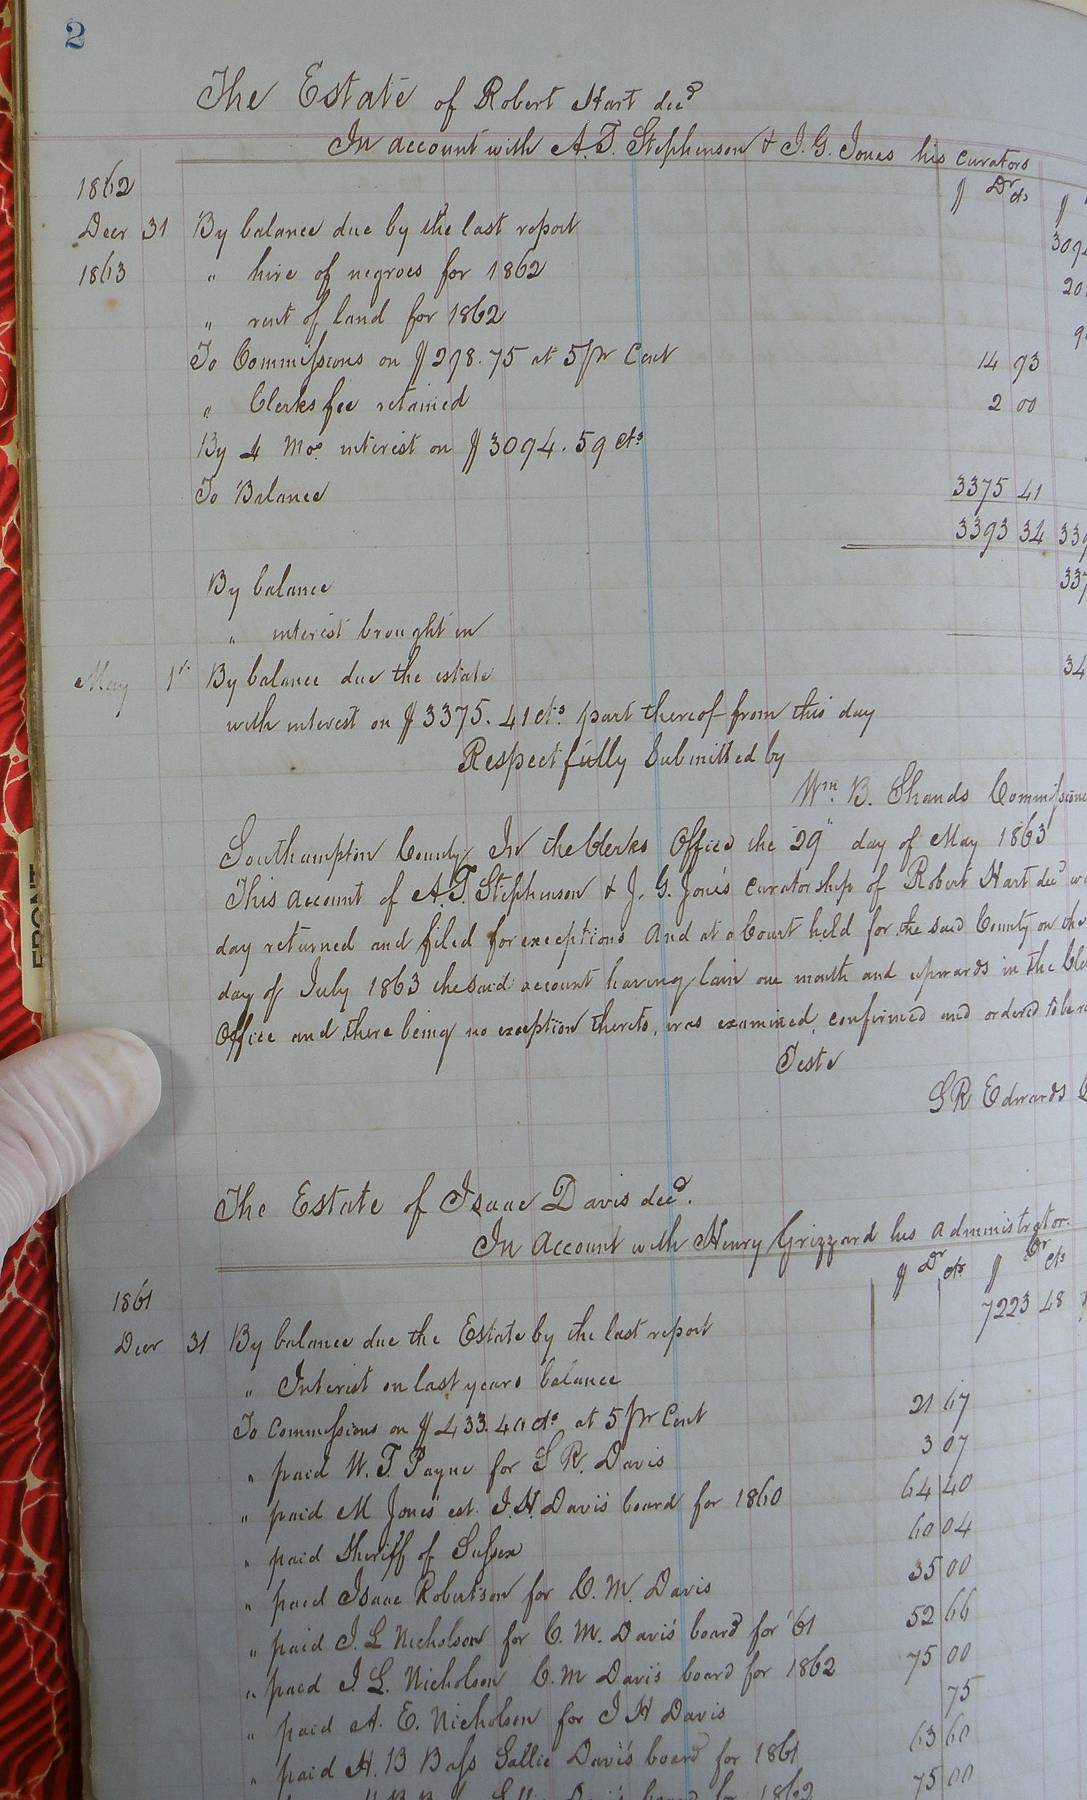 2
The Estate of Robert Hart decd
In account with A.T. Stephenson & J.G. Jones his curators
1862 $ Dr cts $
Decr 31 By balance due by the last report 3094
1863 " hire of negroes for 1862 20
" rent of land for 1862 9
To Commissions on $298.75 at 5 pr Cent 14 93
" Clerks fee retained 2 00
By 4 Mos interest on $3094.59 cts
To Balance 3375 41
3393 34 339
By balance 337
" interest brought in
May 1st By balance due the estate 34
with interest on $3375.41 cts part thereof from this day
Respectfully Submitted by
Wm B. Shands Commissione
Southampton County In the Clerks Office the 29" day of May 1863
This account of A.T. Stephenson & J.G. Jones curatorship of Robert Hart decd
day returned and filed for exceptions And at a Court held for the said County on the
day of July 1863 the said account having lain one month and upwards in the Cle
Office and there being no exception thereto, was examined, confirmed and ordered to be
Teste
S R Edwards C
The Estate of Isaac Davis decd.
In Account with Henry Grizzard his administrator.
1861 $ Dr cts $ Cr cts
Decr 31 By balance due the Estate by the last report 7223 48
" Interest on last years balance
To Commissions on $433.40 cts at 5 pr Cent 21 67
" paid W.T. Payne for S R. Davis 3 07
" paid M Jones' est. J.H. Davis' board for 1860 64 40
" paid Sheriff of Sussex 60 04
" paid Isaac Robertson for C. M. Davis 35 00
" paid J. L Nicholson for C. M. Davis' board for '61 52 66
" paid J. L. Nicholson C. M Davis board for 1862 75 00
" paid A. E. Nicholson for J H Davis 75
" paid H. B Bass Sallie Davis' board for 1861 63 60
board for 1862 75 00